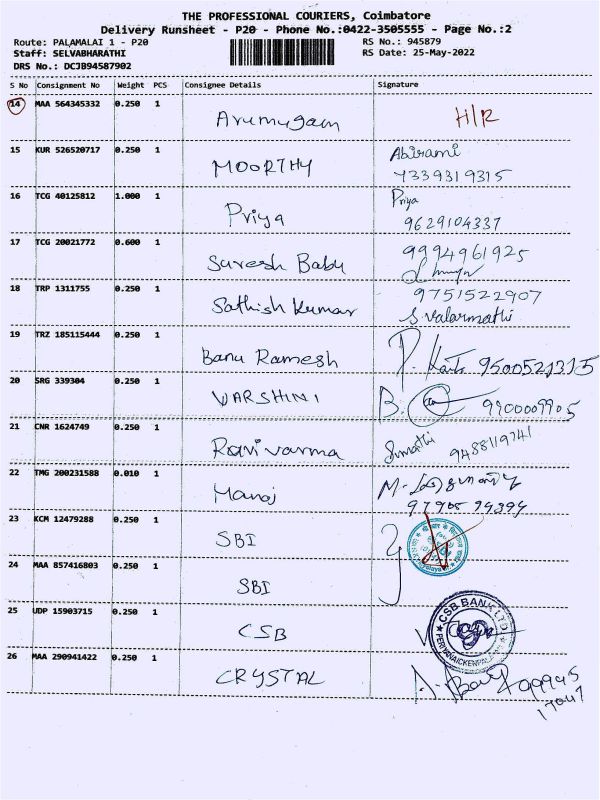 THE PROFESSIONAL COURIERS, Coimbatore
Delivery Runsheet - P20 - Phone No.:0422-3505555 - Page No.:2
Route: PALAMALAI 1 - P20 RS No.: 945879
Staff: SELVABHARATHI RS Date: 25-May-2022
DRS No.: DCJB94587902
S No Consignment No Weight PCS Consignee Details Signature
14 MAA 564345332 0.250 1
Arumugam H/R
15 KUR 526520717 0.250 1 Abirami
MOORTHY 7339319315
16 TCG 40125812 1.000 1 Priya
Priya 9629104337
17 TCG 20021772 0.600 1 9994961925
Suresh Babu
18 TRP 1311755 0.250 1 9751522907
Sathish Kumar S. Valarmathi
19 TRZ 185115444 0.250 1
Banu Ramesh 9500521315
20 SRG 339304 0.250 1
VARSHINI B. 9900009905
21 CNR 1624749 0.250 1 Sumathi
Ravi varma 9488119741
22 TMG 200231588 0.010 1
Manoj
23 KCM 12479288 0.250 1
SBI
24 MAA 857416803 0.250 1
SBI
25 UDP 15903715 0.250 1 CSB BANK LTD
CSB
26 MAA 290941422 0.250 1
CRYSTAL